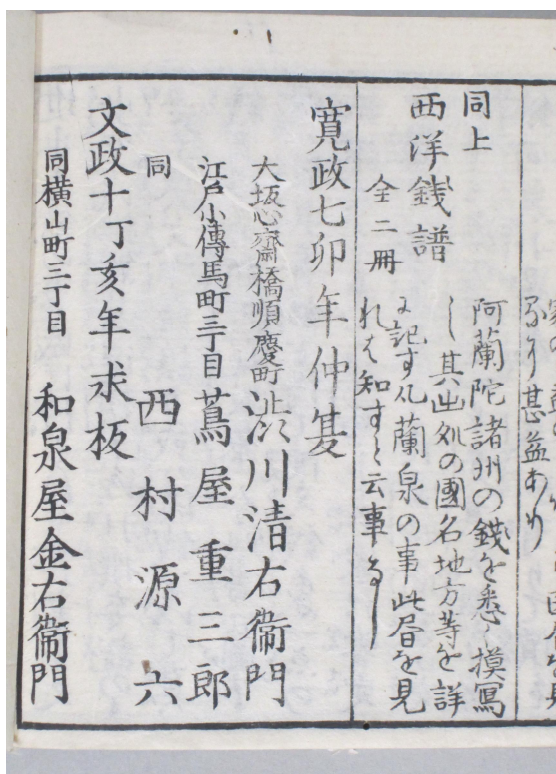 甚益あり
同上
西洋銭譜
全二冊
阿蘭陀諸州の銭を悉く摸寫
し其出処の國名地方等を詳
に記す凡蘭泉の事此書を見
れは知すと云事なし
寛政七卯年仲夏
大坂心齋橋順慶町 渋川清右衛門
江戸小傳馬町三丁目 蔦屋重三郎
同 西村源六
文政十丁亥年求板
同横山町三丁目 和泉屋金右衛門